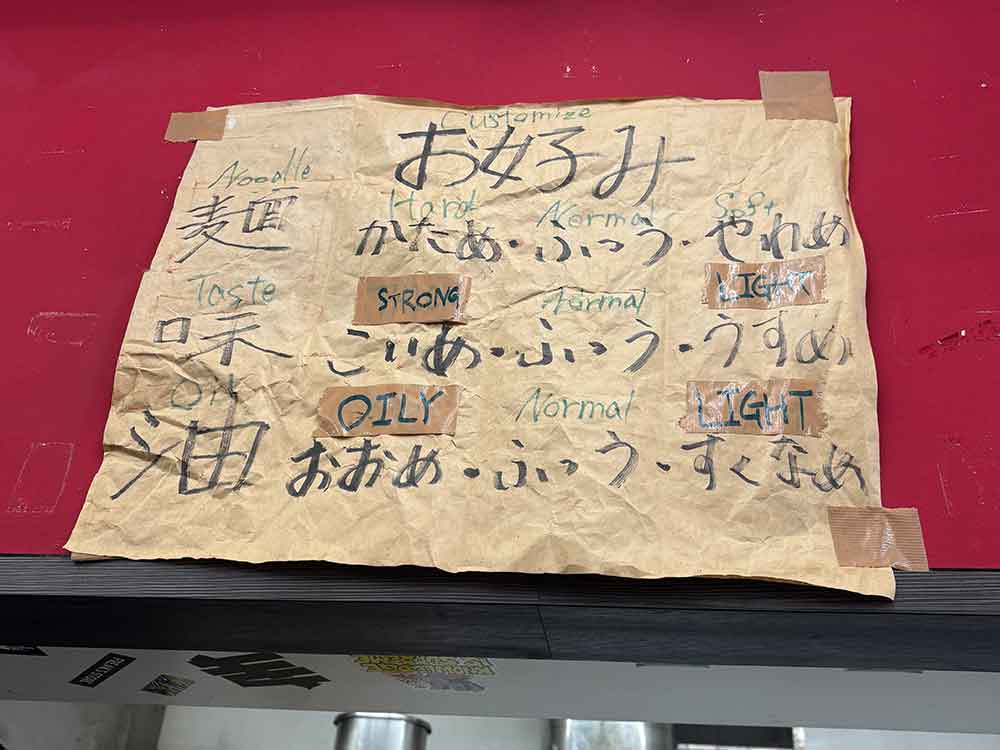 Customize
お好み
Noodle Hard Normal Soft
麺 かため・ふつう・やわめ
Taste STRONG Normal LIGHT
味 こいめ・ふつう・うすめ
Oil OILY Normal LIGHT
油 おおめ・ふつう・すくなめ